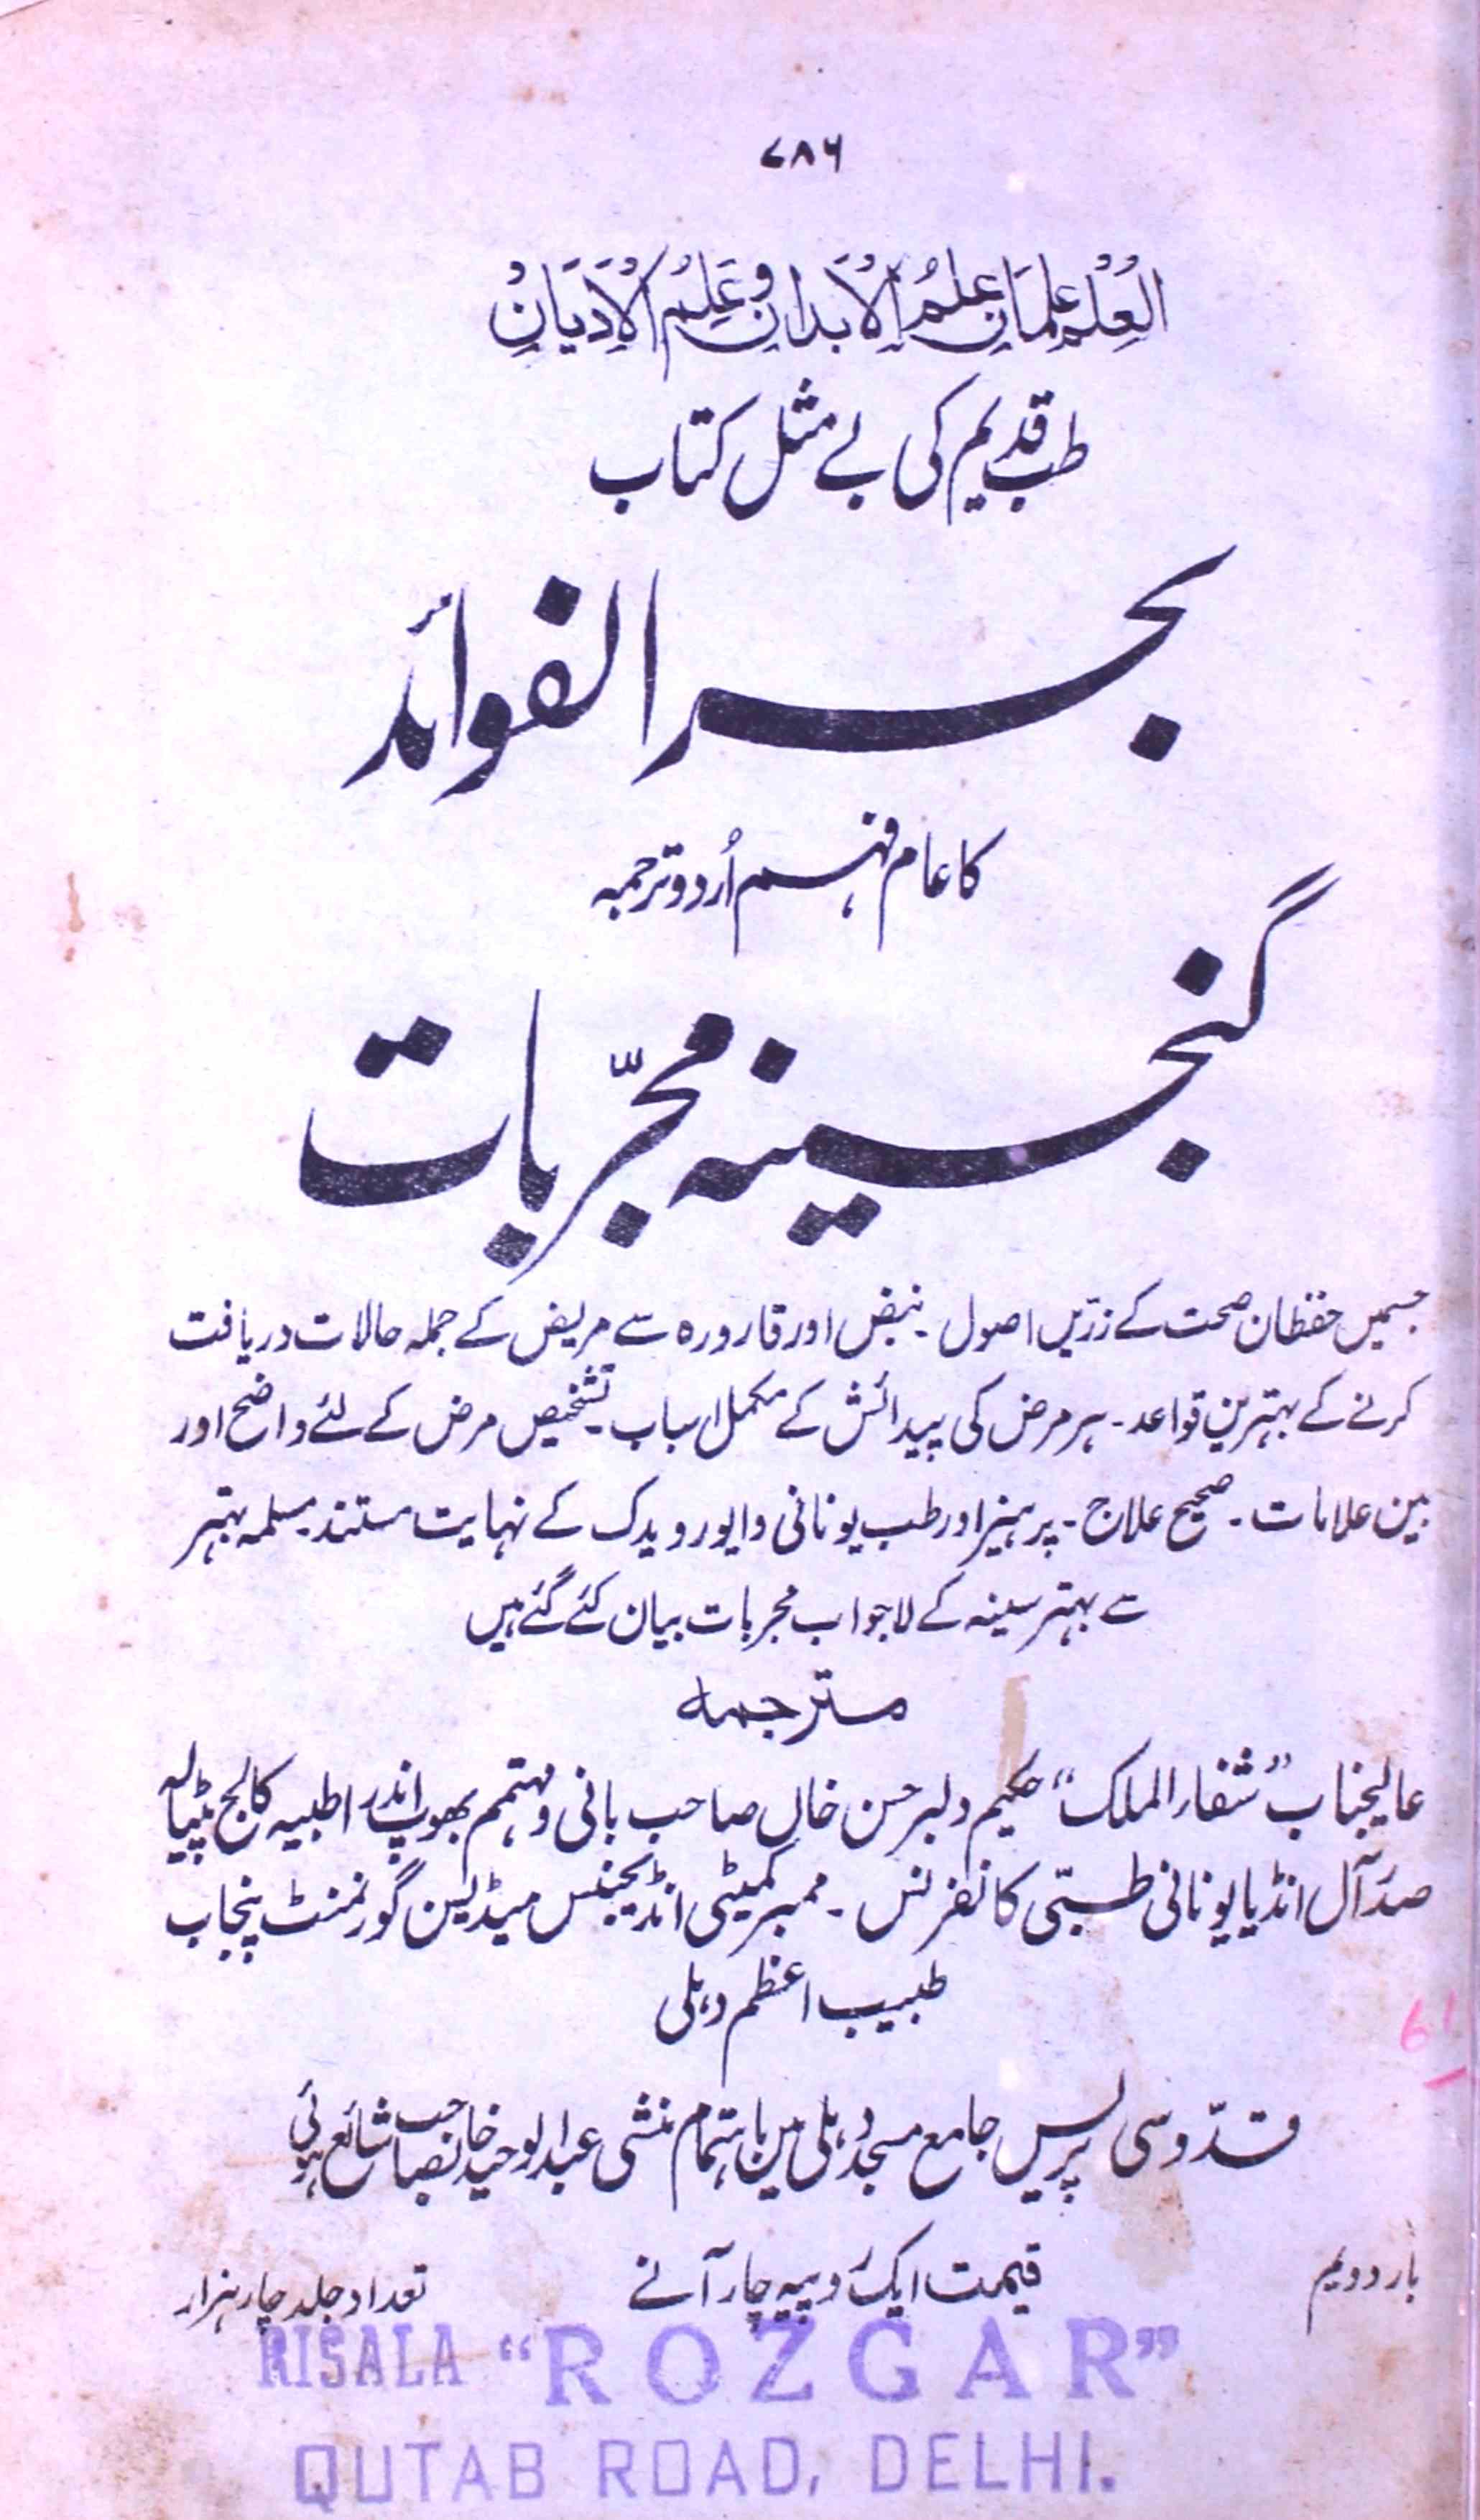 ۷۸۶
العُلْمُ عِلْمَانِ عِلْمُ الْاَبْدَانِ وَعِلْمُ الْاَدْیَانِ
طب قدیم کی بے مثل کتاب
بحر الفوائد
کا عام فہم اُردو ترجمہ
گنجینہ مجرّبات
جسمیں حفظان صحت کے زرّیں اصول ۔ نبض اور قارورہ سے مریض کے جملہ حالات دریافت
کرنے کے بہترین قواعد ۔ ہر مرض کی پیدائش کے مکمل اسباب ۔ تشخیص مرض کے لئے واضح اور
بین علامات ۔ صحیح علاج ۔ پرہیز اور طب یونانی وایورویدک کے نہایت مستند مسلمہ بہتر
سے بہتر سینہ کے لاجواب مجربات بیان کئے گئے ہیں
مترجمہ
عالیجناب "شفاء الملک" حکیم دلبر حسن خاں صاحب بانی و مہتمم بھوپ اندرا طبیہ کالج پٹیالہ
صدر آل انڈیا یونانی طبّی کانفرنس ۔ ممبر کمیٹی انڈیجینس میڈیسن گورنمنٹ پنجاب
طبیب اعظم دہلی
قدّوسی پریس جامع مسجد دہلی میں باہتمام منشی عبدالوحید خانصاحب شائع ہوئی
بار دویم
قیمت ایک روپیہ چار آنے
تعداد جلد چار ہزار
RISALA “ROZGAR”
QUTAB ROAD, DELHI.